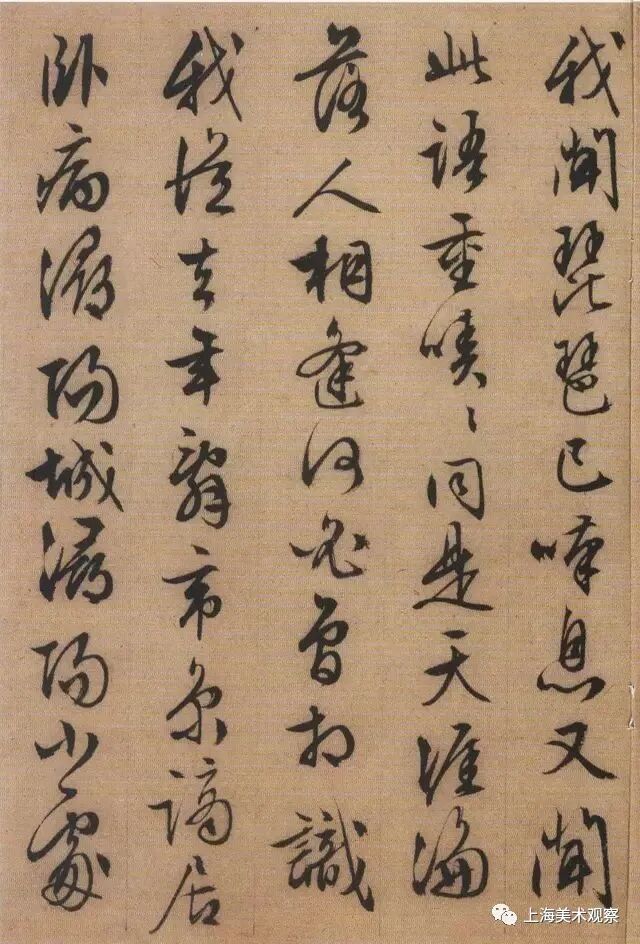 我聞琵琶已嘆息又聞
此語重唧〻同是天涯淪
落人相逢何必曾相識
我從去年辭帝京謫居
卧病潯陽城潯陽小處
上海美术观察